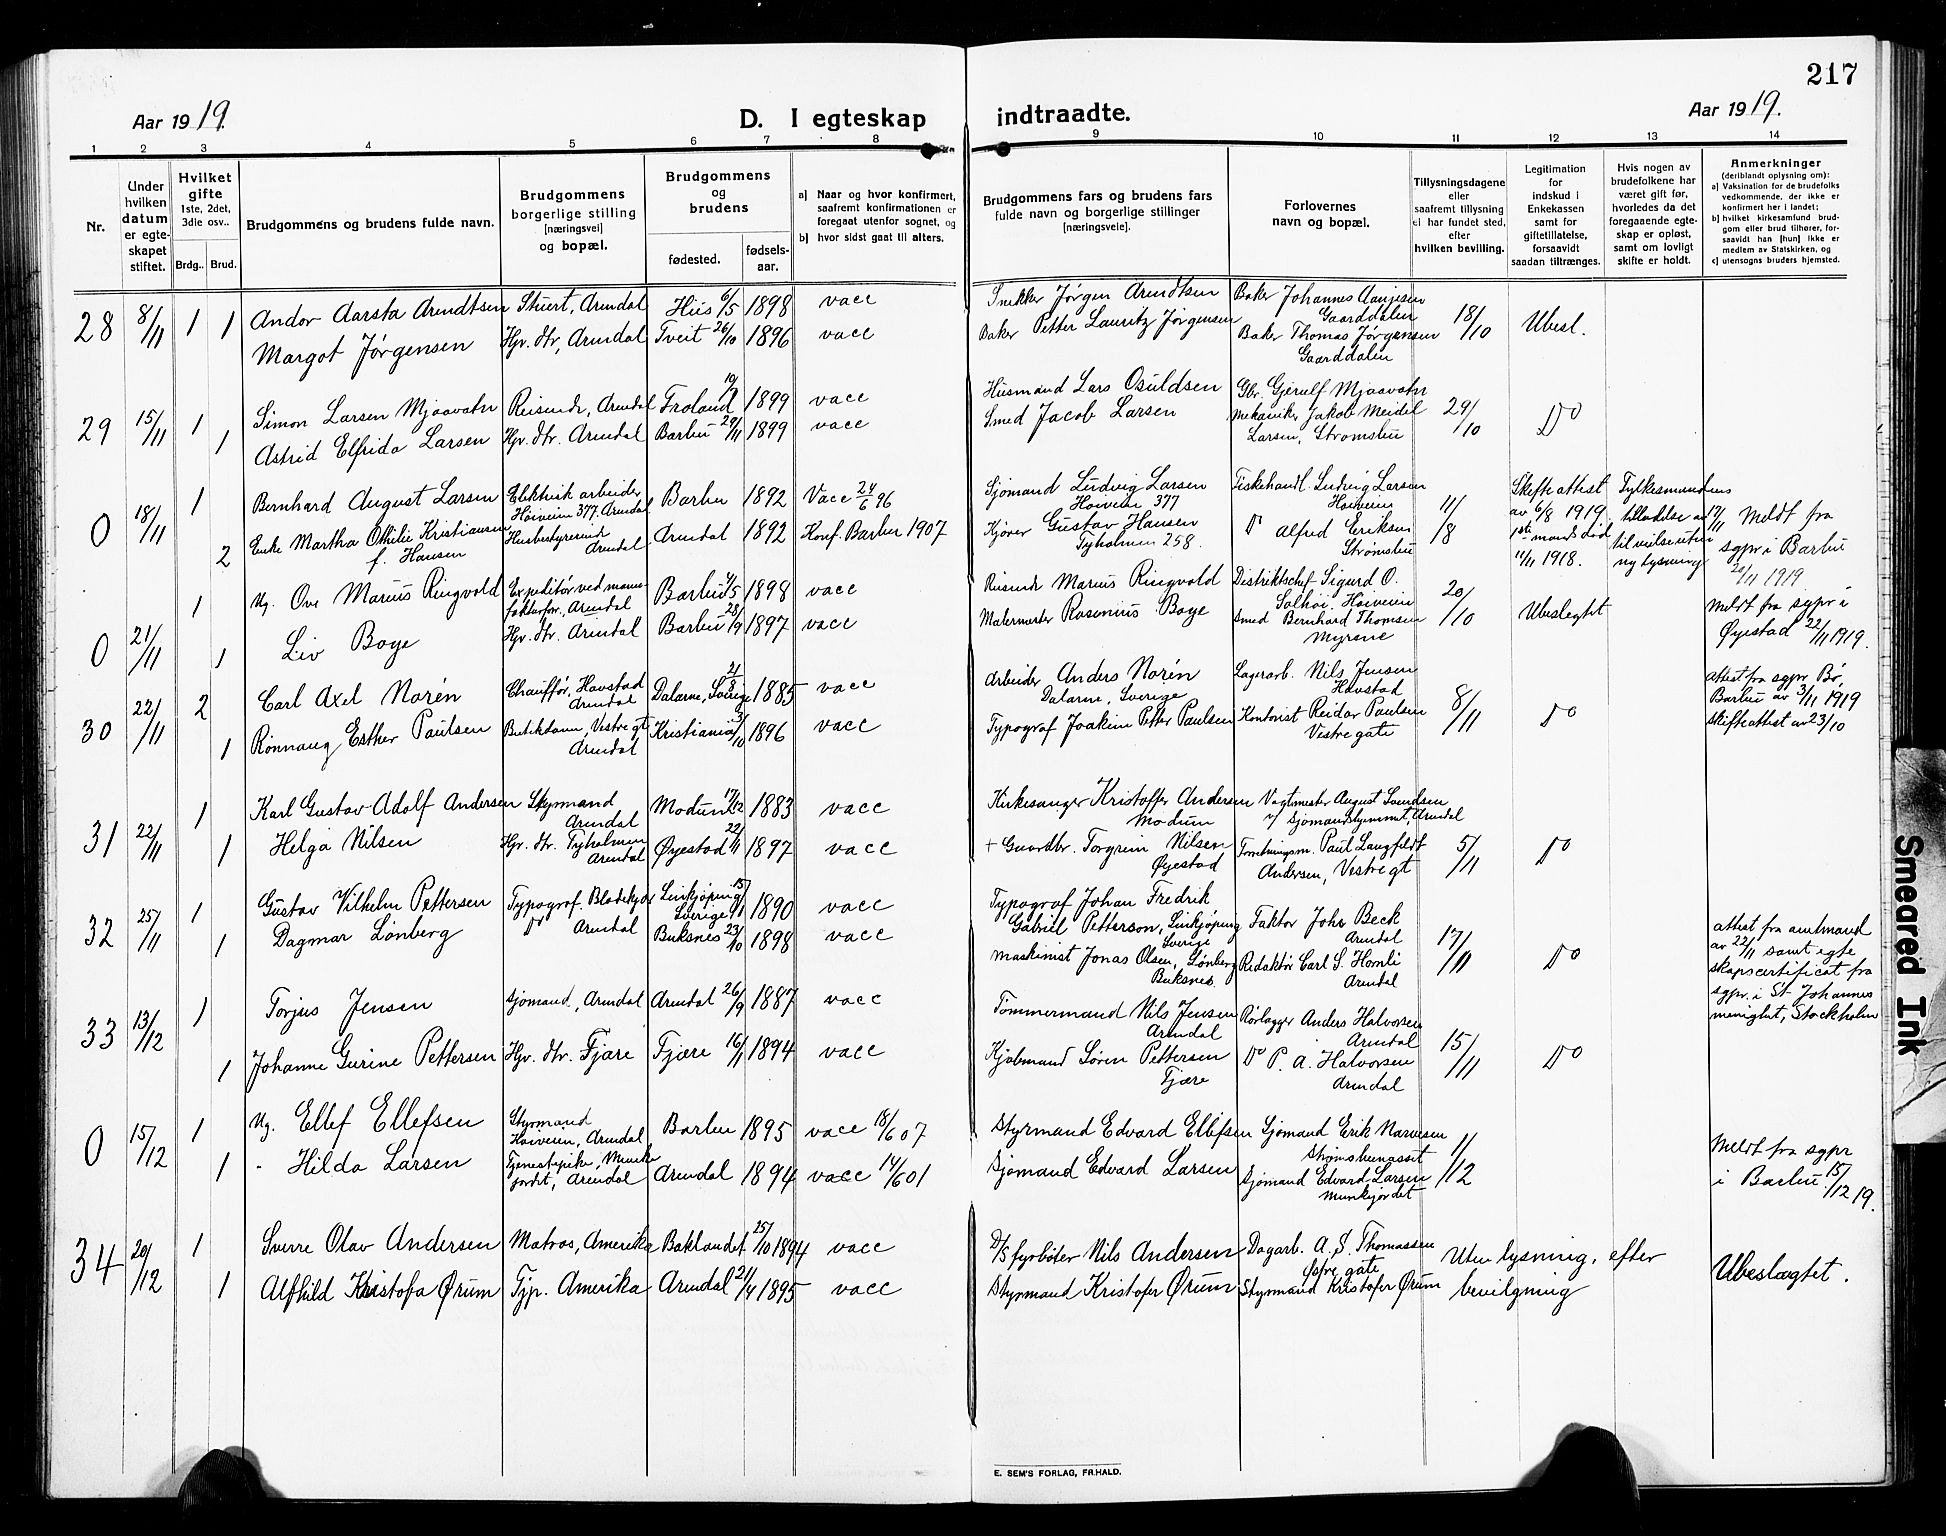 217
Aar 1919.
D. I egteskap indtraadte.
Aar 1919.
1 2 3 4 5 6 7 8 9 10 11 12 13 14
Nr.
Under hvilken datum er egteskapet stiftet.
Hvilket gifte 1ste, 2det, 3die osv..
Brdg.. Brud.
Brudgommens og brudens fulde navn.
Brudgommens borgerlige stilling [næringsvei] og bopæl.
Brudgommens og brudens
fødested.
fødsels-aar.
a) Naar og hvor konfirmert, saafremt konfirmationen er foregaat utenfor sognet, og
b) hvor sidst gaat til alters.
Brudgommens fars og brudens fars fulde navn og borgerlige stillinger [næringsveie].
Forlovernes navn og bopæl.
Tillysningsdagene eller saafremt tillysning ei har fundet sted, efter hvilken bevilling.
Legitimation for indskud i Enkekassen samt for giftetillatelse, forsaavidt saadan tiltrænges.
Hvis nogen av brudefolkene har været gift før, hvorledes da det foregaaende egteskap er opløst, samt om lovligt skifte er holdt.
Anmerkninger (deriblandt oplysning om):
a) Vaksination for de brudefolks vedkommende, der ikke er konfirmert her i landet;
b) hvilket kirkesamfund brudgom eller brud tilhører, forsaavidt han [hun] ikke er medlem av Statskirken, og
c) utensogns bruders hjemsted.
28 8/11 1 1 Andor Aarsta Arndtsen Stuert, Arendal His 6/5 1898 vacc Snekker Jørgen Arendtsen Baker Johannes Gaarddalen 18/10 Ubesl.
Margot Jørgensen Hr. dtr, Arendal Tveit 26/10 1896 vacc Baker Petter Lauritz Jørgensen Baker Thomas Jørgensen Gaarddalen
29 15/11 1 Simon Larsen Mjaavatn Reisende, Arendal Froland 1899 vacc Husmand Lars Osuldsen Gbr. Gjerulf Mjaavatn 29/10 Do
1 Astrid Elfrida Larsen Hr. dtr. Arendal Barbu 29/11 1899 vacc Smed Jacob Larsen Mekaniker Jakob Meidel Larsen, Strømsbu
0 18/11 1 Bernhard August Larsen Elektrisk arbeider Høiveien 377. Arendal Barbu 1892 Vacc 24/6 96 Sjømand Ludvig Larsen Høiveien 377 Fiskehandl. Ludvig Larsen Høiveien 11/8 Skifteattest av 6/8 1919, 1ste mands død 11/11 1918. Fylkesmandens tilladelse av 17/11 til vielse uten ny lysning Meldt fra sgpr i Barbu 20/11 1919
2 Enke Martha Othilie Kristiansen f. Hansen Husbestyrerinde Arendal Arendal 1892 Konf. Barbu 1907 Kjører Gustav Hansen Tyholmen 258. Do Alfred Eriksen Strømsbu
0 21/11 1 Ug. Ove Marius Ringvold Expeditør ved manufakturfor. Arendal Barbu 4/5 1898 vacc Reisende Marius Ringvold Distriktschef Sigurd O. Solhøi. Høiveien 20/10 Ubeslegtet Meldt fra sgpr i Øyestad 22/11 1919.
1 Liv Boye Hr. dtr. Arendal Barbu 28/9 1897 vacc Malermester Rosenius Boye Smed Bernhard Thomsen Myrene
30 22/11 2 Carl Axel Norén Chauffør, Havstad Arendal Dalarne, Sverige 21/8 1885 vacc Arbeider Anders Norén Dalarne, Sverige Lagerarb. Nils Jensen Havstad 8/11 Do Attest fra sgpr Bø, Barbu av 3/11 1919 Skifteattest av 23/10
1 Rønnaug Esther Paulsen Butikdame, Vestre gt Arendal Kristiania 1896 vacc Typograf Joakim Petter Paulsen Kontorist Reidar Paulsen Vestre gate
31 22/11 1 Karl Gustav Adolf Andersen Styrmand Arendal Modum 17/12 1883 vacc Kirkesanger Kristoffer Andersen Modum Vagtmester August Svendsen v/ Sjømandshjemmet, Arendal 5/11 Do
1 Helga Nilsen Hr. dtr. Tyholmen Arendal Øyestad 22/11 1897 vacc + Gaardbr. Torgrim Nilsen Øyestad Forretningsm. Paul Langfeldt Andersen, Vestre gt
32 25/11 1 Gustav Vilhelm Pettersen Typograf. Blødekjær Linkjøping Sverige 1890 vacc Typograf Johan Fredrik Gabriel Petterson, Linkjøping Sverige Faktor Johs Beck Arendal 17/11 Do Attest fra amtmand av 22/11 samt egteskapscertificat fra sgpr. i St Johannes menighet, Stockholm
1 Dagmar Lønberg Do Arendal Buksnes 23/10 1898 vacc Maskinist Jonas Olsen, Lønberg Buksnes. Redaktør Carl S. Hornli Arendal
33 13/12 1 Torjus Jensen Sjømand, Arendal Arendal 26/9 1887 vacc Tømmermand Nils Jensen Arendal Rørlægger Anders Halvorsen Arendal 15/11 Do
1 Johanne Gurine Pettersen Hr. dtr. Fjære Fjære 16/11 1894 vacc Kjøbmand Søren Pettersen Fjære Do P. A. Halvorsen Arendal
0 15/12 1 Ug. Ellef Ellefsen Styrmand Høiveien, Arendal Barbu 1895 vacc 18/6 07 Styrmand Edvard Ellefsen Sjømand Erik Narvesen Strømsbuneset 1/12 Meldt fra sgpr i Barbu 15/12 19.
1 - Hilda Larsen Tjenestepike, Munkejordet, Arendal Arendal 1894 vacc 14/6 01 Sjømand Edvard Larsen Sjømand Edvard Larsen Munkejordet
34 20/12 1 Sverre Olav Andersen Matros, Amerika Baklandet 25/10 1894 vacc D/S fyrbøter Nils Andersen Dagarb. A. S. Thomassen gate Uten lysning, efter bevilgning Ubeslægtet.
1 Alfhild Kristofa Ørum Tjp. Amerika Arendal 21/4 1895 vacc Styrmand Kristofer Ørum Styrmand Kristofer Ørum
E. SEM'S FORLAG, FR.HALD.
Smeared Ink